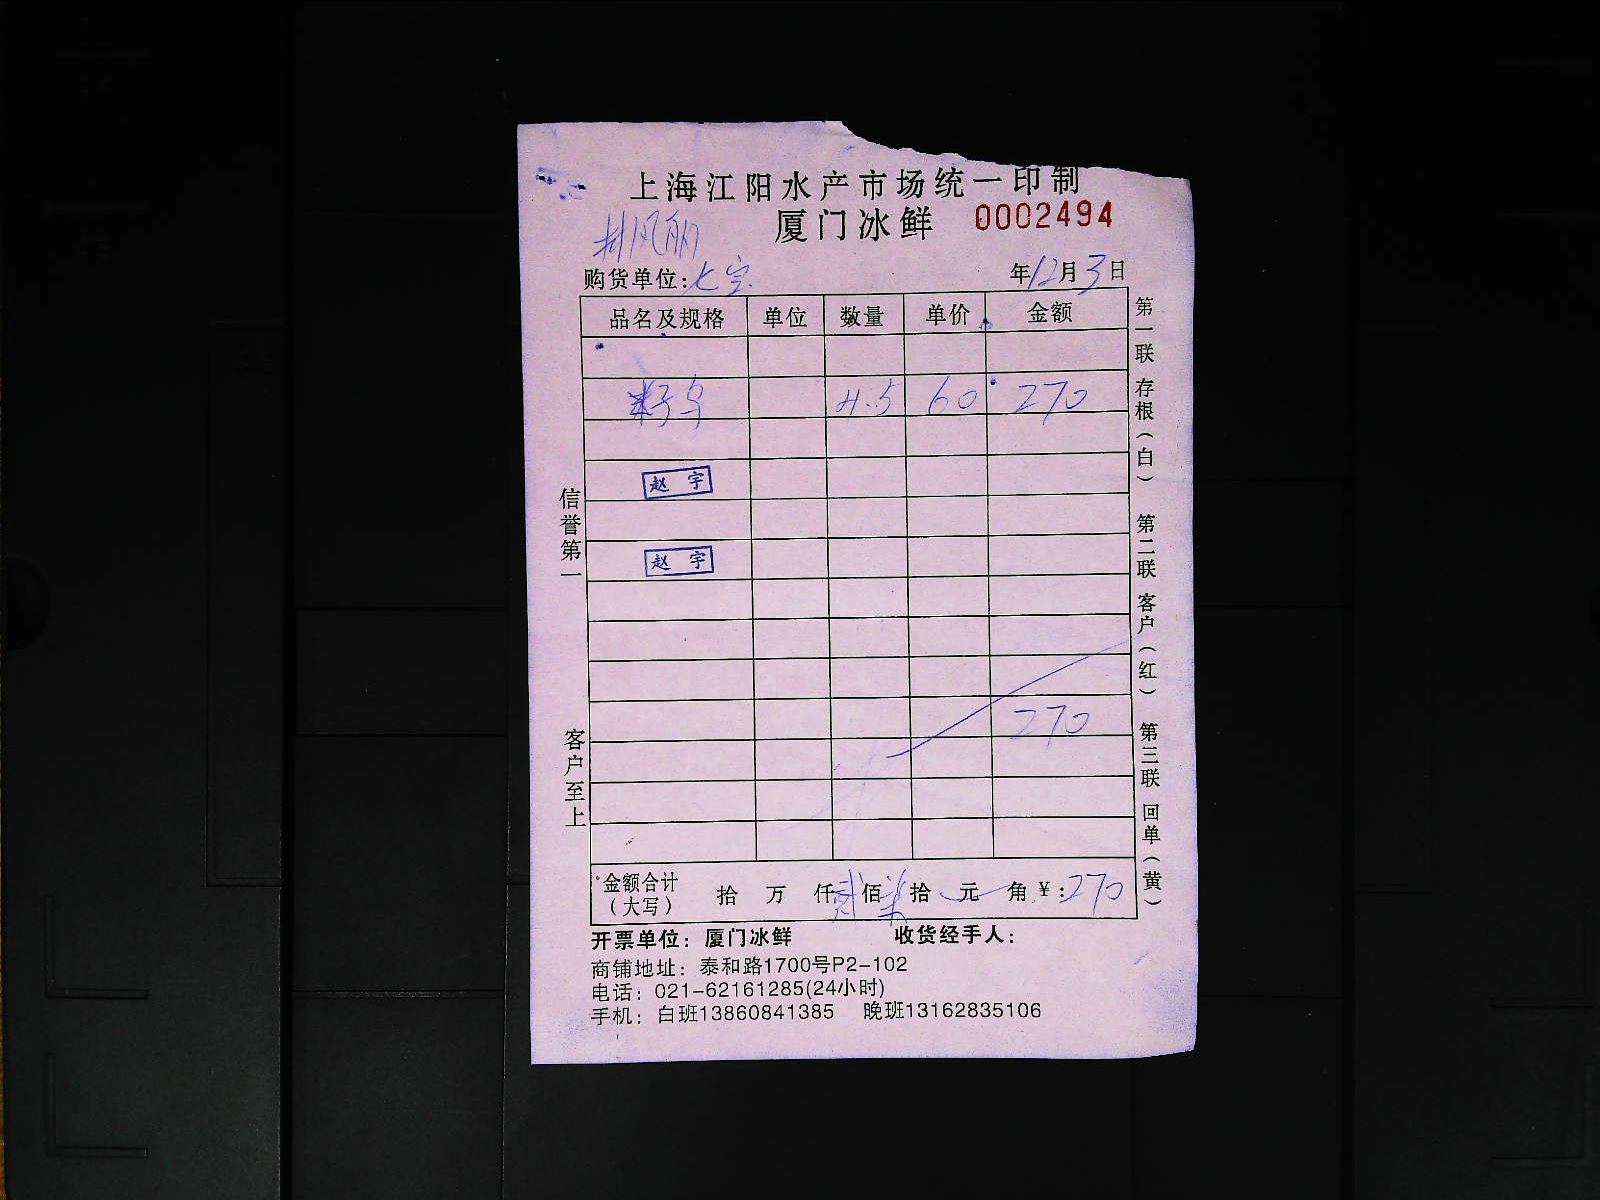 上海江阳水产市场统一印制
厦门冰鲜 0002494
购货单位:七宝 年12月3日
品名及规格 单位 数量 单价 金额
籽乌 4.5 60 270
赵 宇
赵 宇
270
金额合计(大写) 拾 万 仟贰佰柒拾 元 角 ¥:270
开票单位:厦门冰鲜 收货经手人:
商铺地址:泰和路1700号P2-102
电话:021-62161285(24小时)
手机:白班13860841385 晚班13162835106
信誉第一
客户至上
第一联 存根(白) 第二联 客户(红) 第三联 回单(黄)